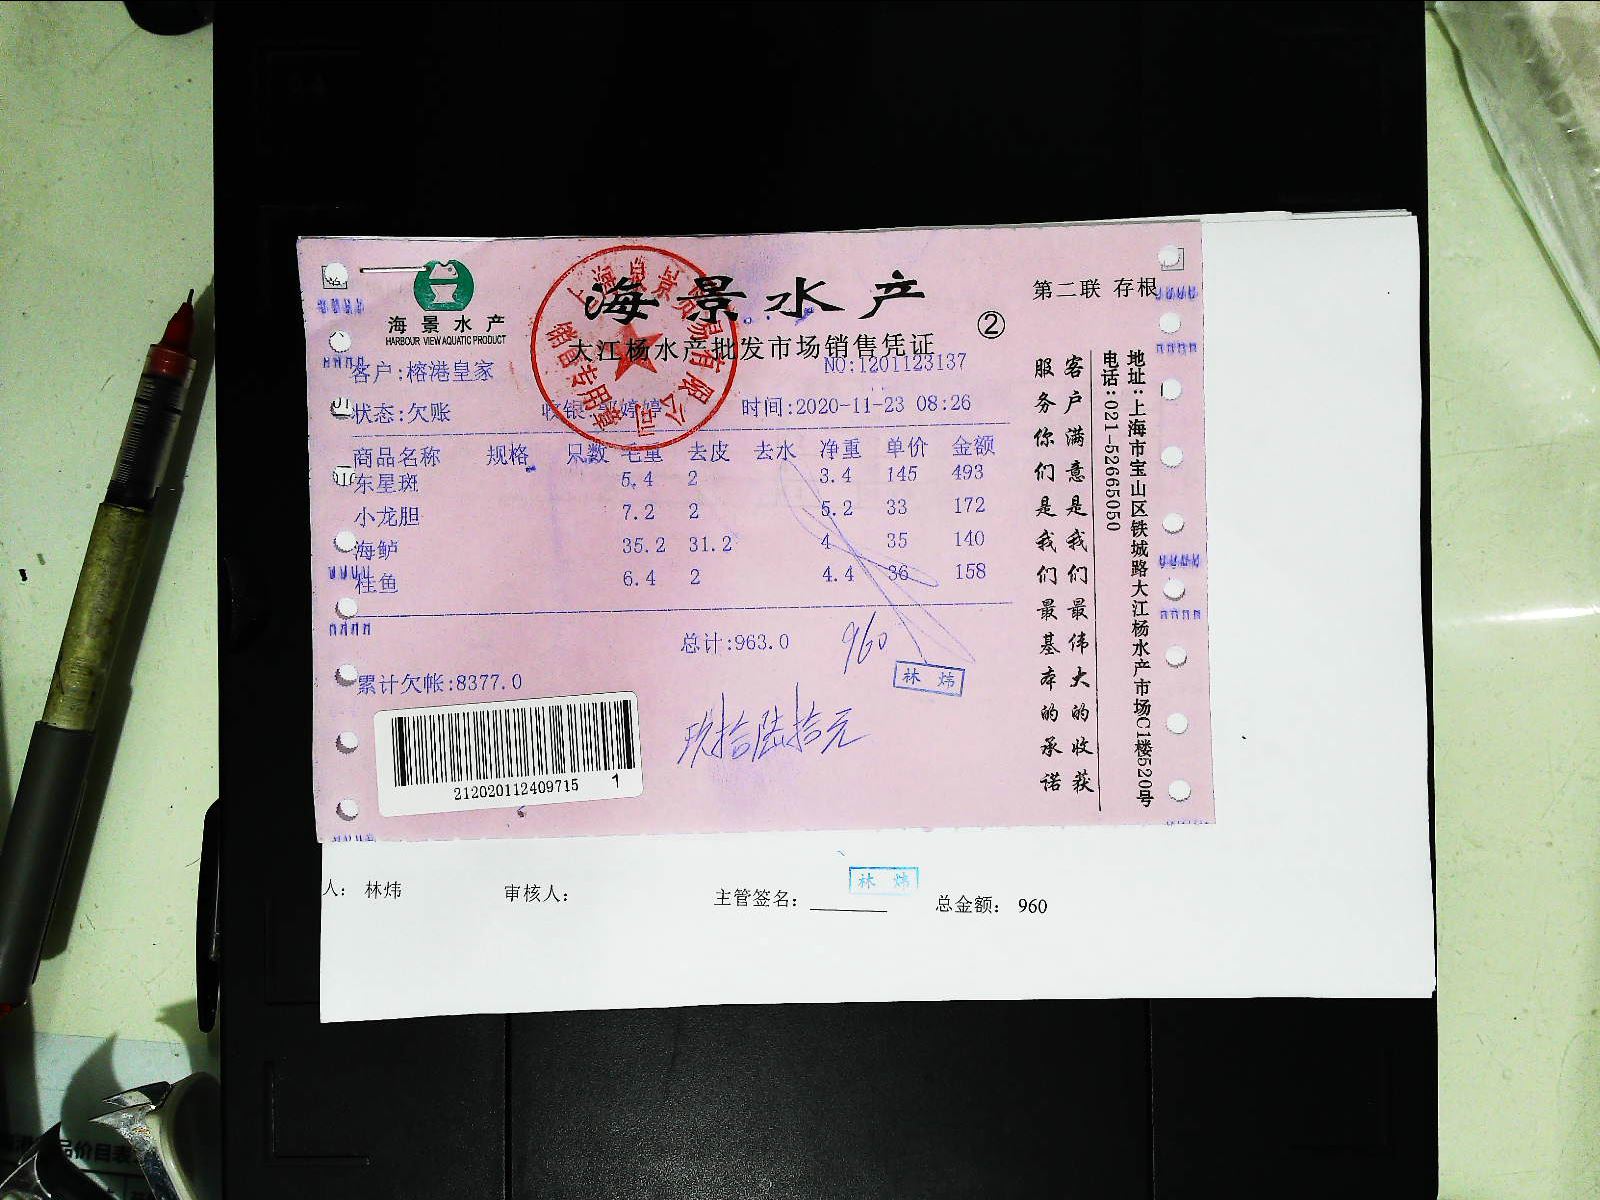 海景水产
HARBOUR VIEW AQUATIC PRODUCT
海景水产
第二联 存根
②
大江杨水产批发市场销售凭证
客户:榕港皇家 NO:1201123137
状态:欠账 收银: 婷婷 时间:2020-11-23 08:26
商品名称 规格 只数 毛重 去皮 去水 净重 单价 金额
东星斑 5.4 2 3.4 145 493
小龙胆 7.2 2 5.2 33 172
海鲈 35.2 31.2 4 35 140
桂鱼 6.4 2 4.4 36 158
总计:963.0 960
林炜
累计欠帐:8377.0
玖拾陆拾元
212020112409715 1
客户满意是我们最伟大的收获
服务你们是我们最基本的承诺
地址:上海市宝山区铁城路大江杨水产市场C1楼520号
电话:021-52665050
人: 林炜 审核人: 主管签名: 林炜 总金额: 960
品价目表